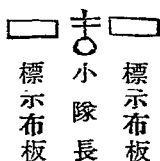 標示布板
小隊長
標示布板